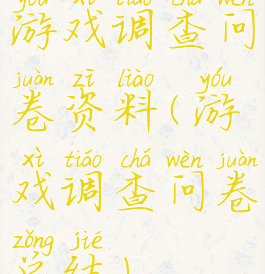 yóu xì tiáo chá wèn
游戏调查问
juàn zī liào yóu
卷资料(游
xì tiáo chá wèn juàn
戏调查问卷
zǒng jié
总结)